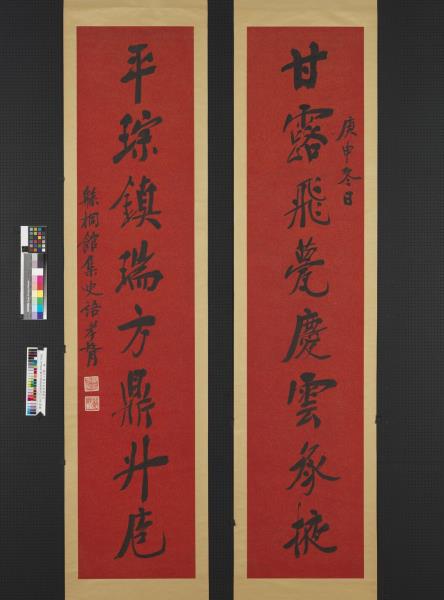 甘露飛甍慶雲承掖
庚申冬日
平琮鎮瑞方鼎升庖
緜桐館集史語孝胥